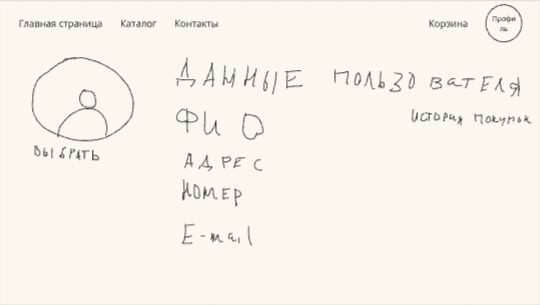 Главная страница Каталог Контакты Корзина Профи
ль
ДАННЫЕ ПОЛЬЗОВАТЕЛЯ
ФИО
История покупок
ВЫБРАТЬ
АДРЕС
НОМЕР
E-mail